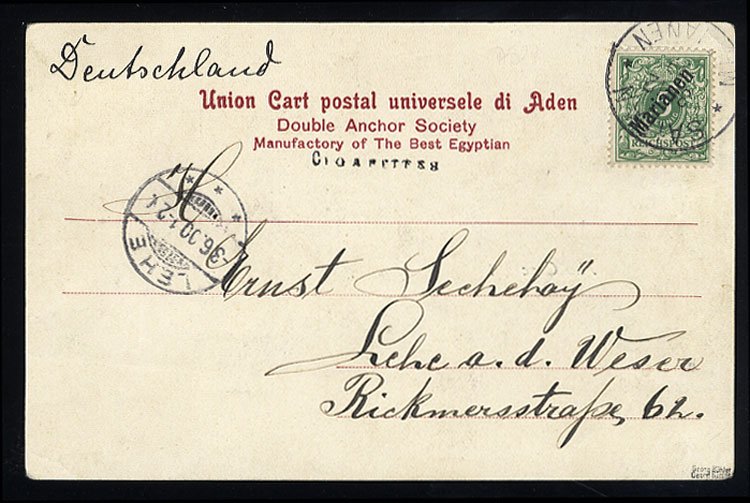 Deutschland
Union Cart postal universele di Aden
Double Anchor Society
Manufactory of The Best Egyptian
CIGARETTES
Marianen
5
REICHSPOST
LEHE
H
Ernst Sechehaÿ
Lehe a. d. Weser
Rickmersstraße, 62.